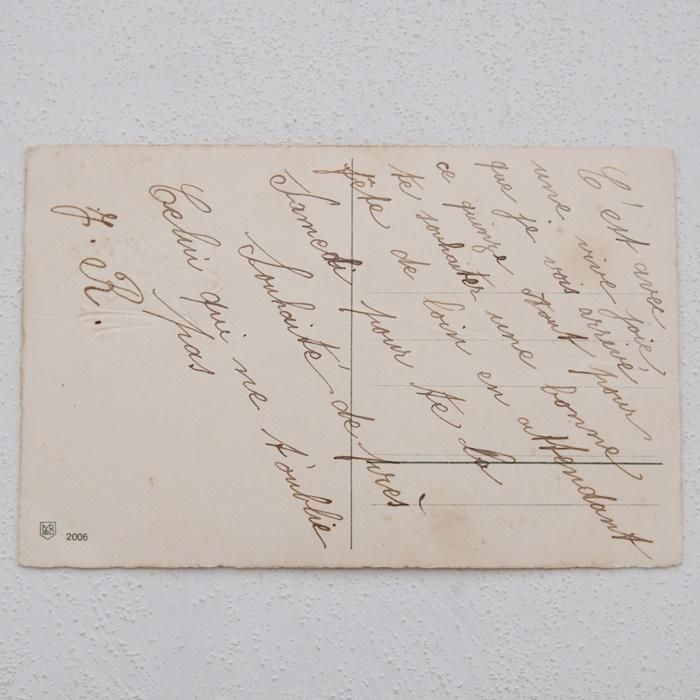 C'est avec
une vive joie
que je vois arrivé
ce quinze Aout pour
te souhaiter une bonne
fête de loin en attendant
Samedi pour te la
Souhaité de près
Celui qui ne t'oublie
pas
J. R.
2006